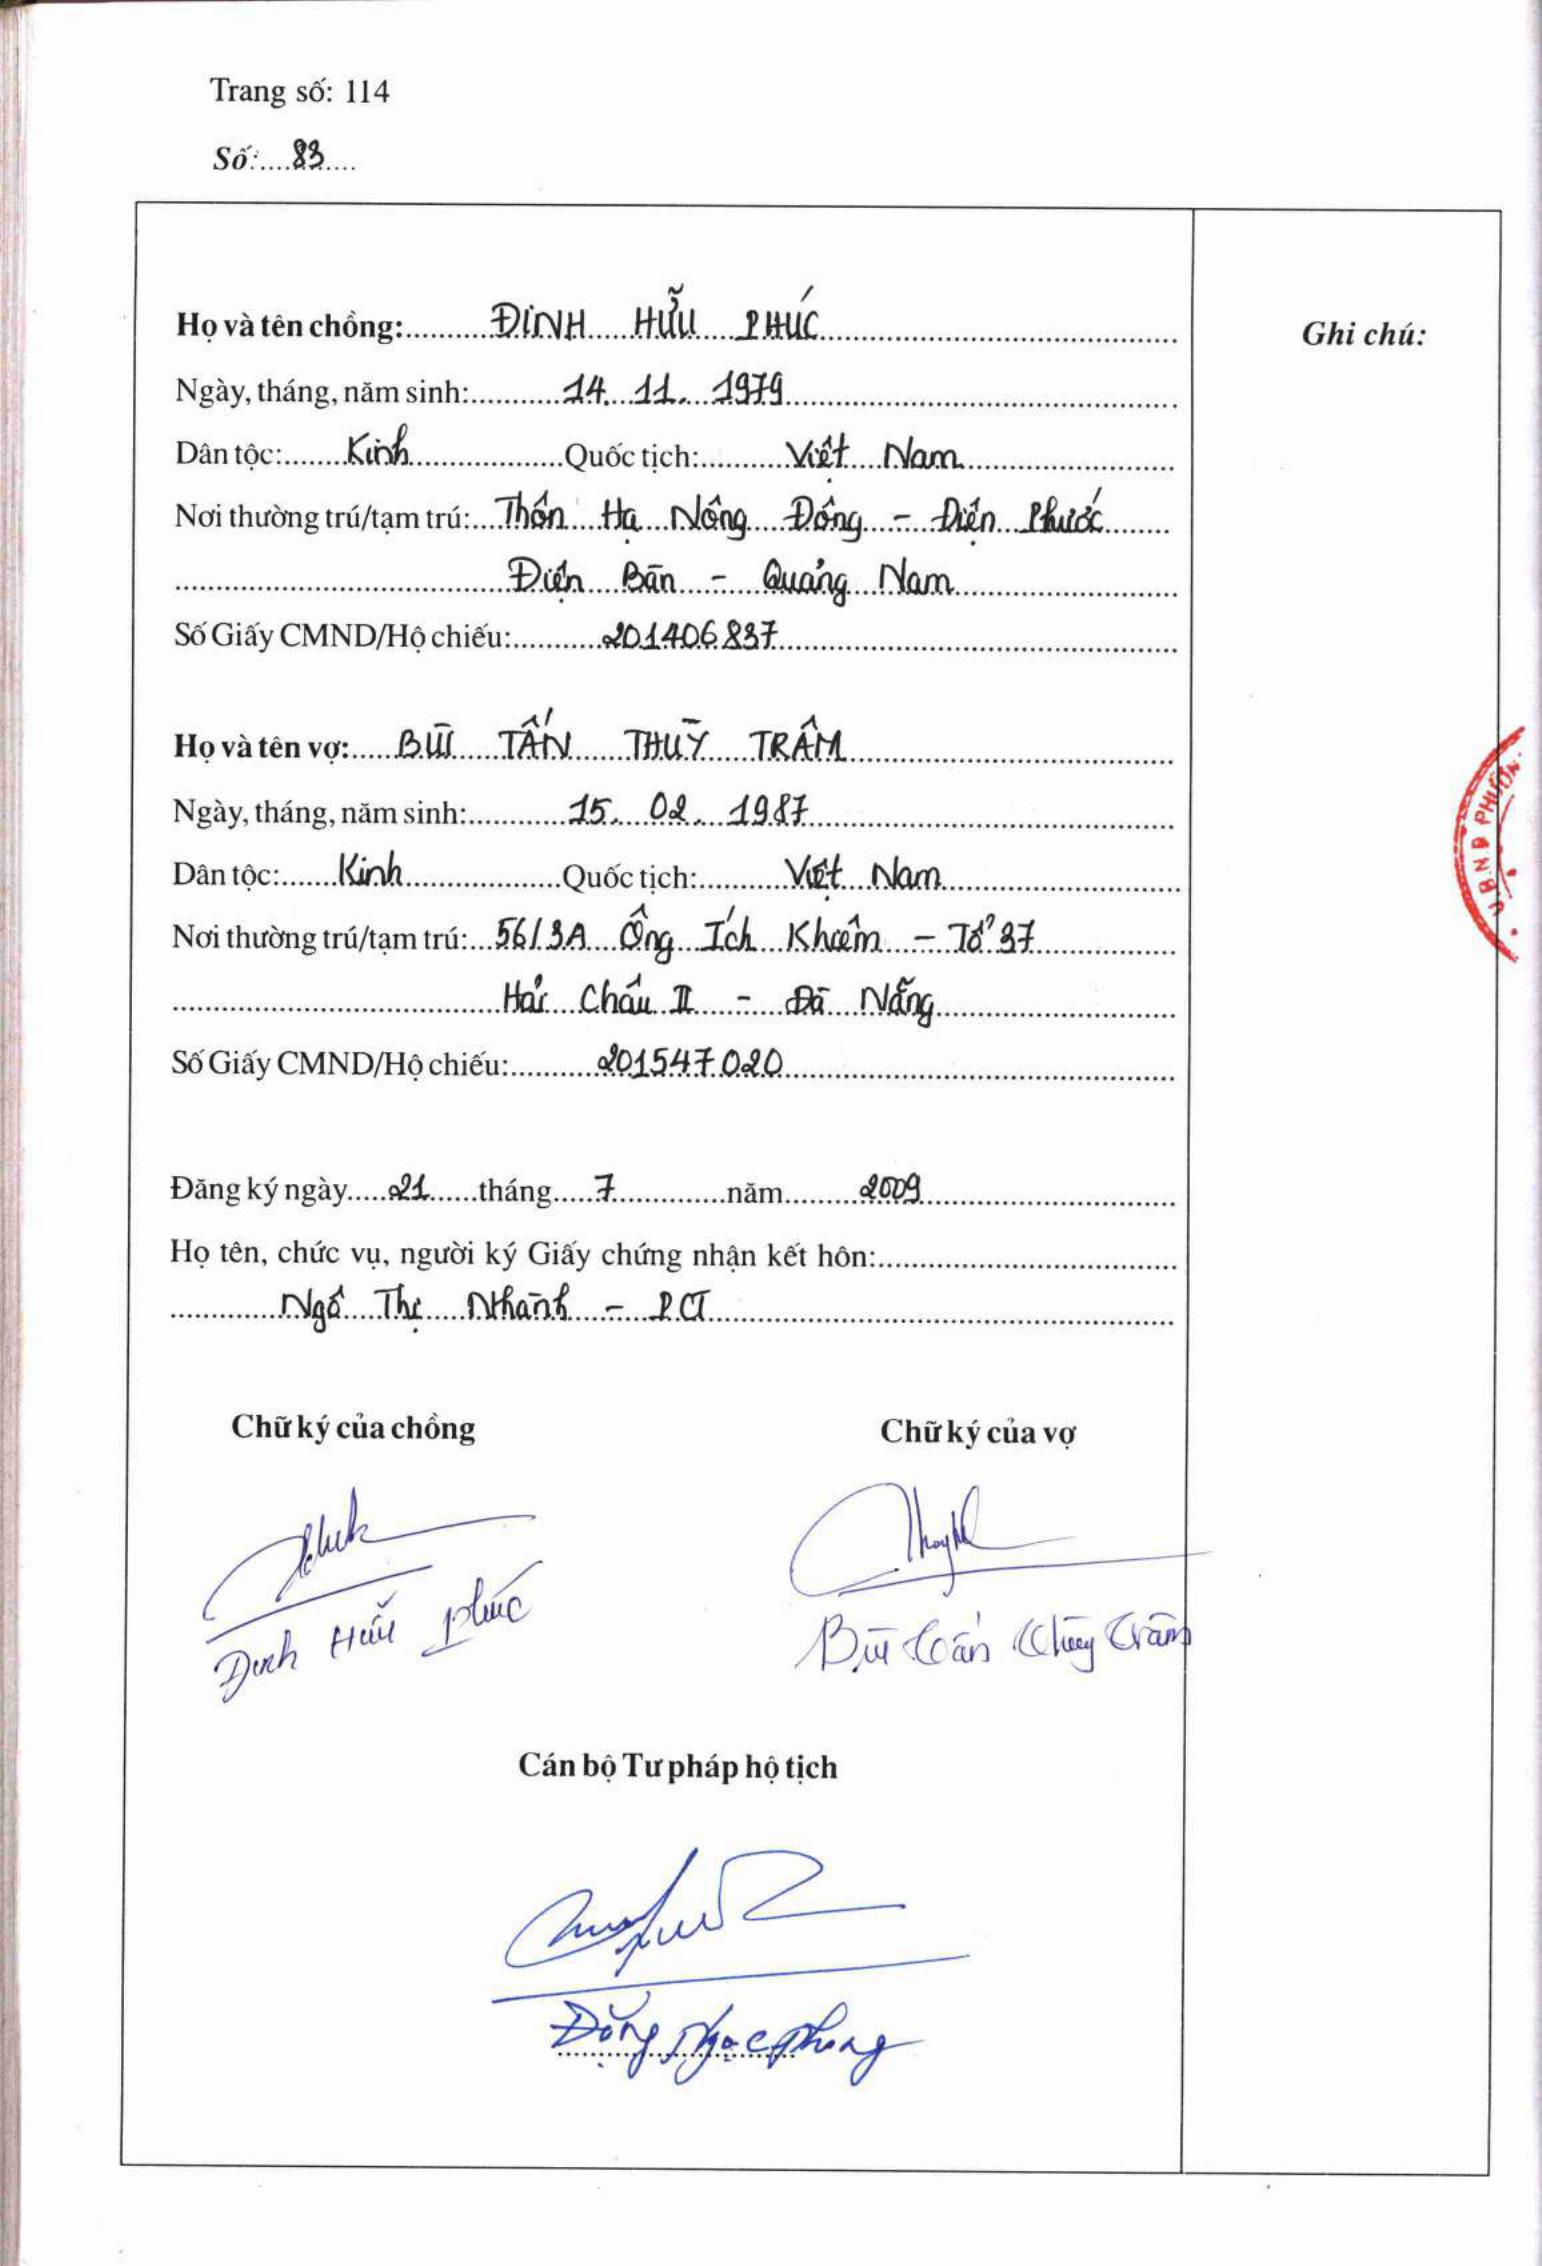 Trang số: 114
Số: 83
Họ và tên chồng: ĐINH HỮU PHÚC
Ghi chú:
Ngày, tháng, năm sinh: 14. 11. 1979
Dân tộc: Kinh Quốc tịch: Việt Nam
Nơi thường trú/tạm trú: Thôn Hạ Nông Đông - Điện Phước
Điện Bàn - Quảng Nam
Số Giấy CMND/Hộ chiếu: 201406837
Họ và tên vợ: BÙI TẤN THÙY TRÂM
Ngày, tháng, năm sinh: 15. 02. 1987
Dân tộc: Kinh Quốc tịch: Việt Nam
Nơi thường trú/tạm trú: 56/3A Ông Ích Khiêm - Tổ 37
Hải Châu II - Đà Nẵng
Số Giấy CMND/Hộ chiếu: 201547020
U.B.N.D PHƯỜN
Đăng ký ngày 21 tháng 7 năm 2009
Họ tên, chức vụ, người ký Giấy chứng nhận kết hôn:
Ngô Thị Nhành - PCT
Chữ ký của chồng Chữ ký của vợ
Đinh Hữu Phúc Bùi Tấn Thùy Trâm
Cán bộ Tư pháp hộ tịch
Đặng Ngọc Phong